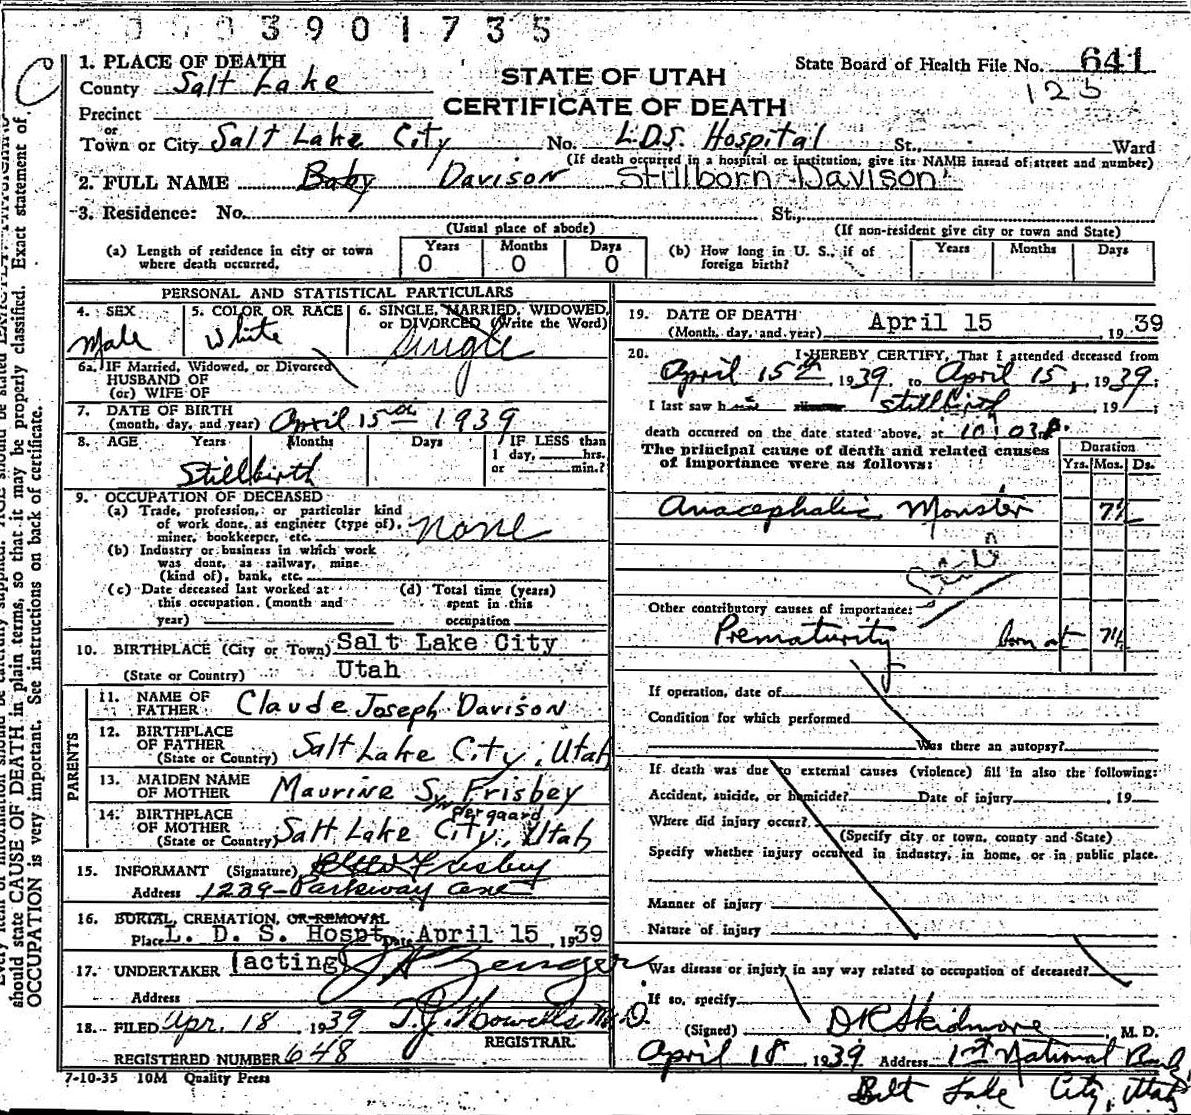 3901735
C
1. PLACE OF DEATH
County Salt Lake
STATE OF UTAH
CERTIFICATE OF DEATH
State Board of Health File No. 641
125
Precinct
or
Town or City Salt Lake City No. L.D.S. Hospital St., Ward
(If death occurred in a hospital or institution, give its NAME insead of street and number)
2. FULL NAME Baby Davison Stillborn Davison
3. Residence: No. St.,
(Usual place of abode) (If non-resident give city or town and State)
(a) Length of residence in city or town where death occurred. Years 0 Months 0 Days 0
(b) How long in U. S., if of foreign birth? Years Months Days
PERSONAL AND STATISTICAL PARTICULARS
4. SEX Male
5. COLOR OR RACE White
6. SINGLE, MARRIED, WIDOWED, or DIVORCED (Write the Word) Single
6a. IF Married, Widowed, or Divorced
HUSBAND OF
(or) WIFE OF
7. DATE OF BIRTH
(month, day, and year) April 15th 1939
8. AGE Years Months Days IF LESS than
1 day, hrs.
or min.?
Stillbirth
9. OCCUPATION OF DECEASED
(a) Trade, profession, or particular kind
of work done, as engineer (type of),
miner, bookkeeper, etc. none
(b) Industry or business in which work
was done, as railway, mine
(kind of), bank, etc.
(c) Date deceased last worked at
this occupation. (month and
year)
(d) Total time (years)
spent in this
occupation
10. BIRTHPLACE (City or Town) Salt Lake City
(State or Country) Utah
PARENTS
11. NAME OF
FATHER Claude Joseph Davison
12. BIRTHPLACE
OF FATHER
(State or Country) Salt Lake City, Utah
13. MAIDEN NAME
OF MOTHER Maurine Syn Frisbey
pergaard
14. BIRTHPLACE
OF MOTHER
(State or Country) Salt Lake City, Utah
15. INFORMANT (Signature) Frisbey
Address 1239 Parkway Ave
16. BURIAL, CREMATION, OR REMOVAL
Place L. D. S. Hospt Date April 15, 1939
17. UNDERTAKER (acting)
Address
18. FILED Apr. 18, 1939 T.J. Howells M.D.
REGISTRAR.
REGISTERED NUMBER 648
7-10-35 10M Quality Press
19. DATE OF DEATH
(Month, day, and year) April 15, 1939
20. I HEREBY CERTIFY, That I attended deceased from
April 15th, 1939 to April 15, 1939;
I last saw h stillbirth, 19 ;
death occurred on the date stated above, at 10:03 P.
The principal cause of death and related causes
of importance were as follows:
Duration
Yrs. Mos. Ds.
Anacephalic Monster 7½
Other contributory causes of importance:
Prematurity born at 7½
If operation, date of
Condition for which performed
Was there an autopsy?
If death was due to external causes (violence) fill in also the following:
Accident, suicide, or homicide? Date of injury , 19
Where did injury occur?
(Specify city or town, county and State)
Specify whether injury occurred in industry, in home, or in public place.
Manner of injury
Nature of injury
Was disease or injury in any way related to occupation of deceased?
If so, specify
(Signed) DR Skidmore, M. D.
April 18, 1939 Address 1st National Bank
Salt Lake City, Utah
should state CAUSE OF DEATH in plain terms, so that it may be properly classified. Exact statement of
OCCUPATION is very important. See instructions on back of certificate.